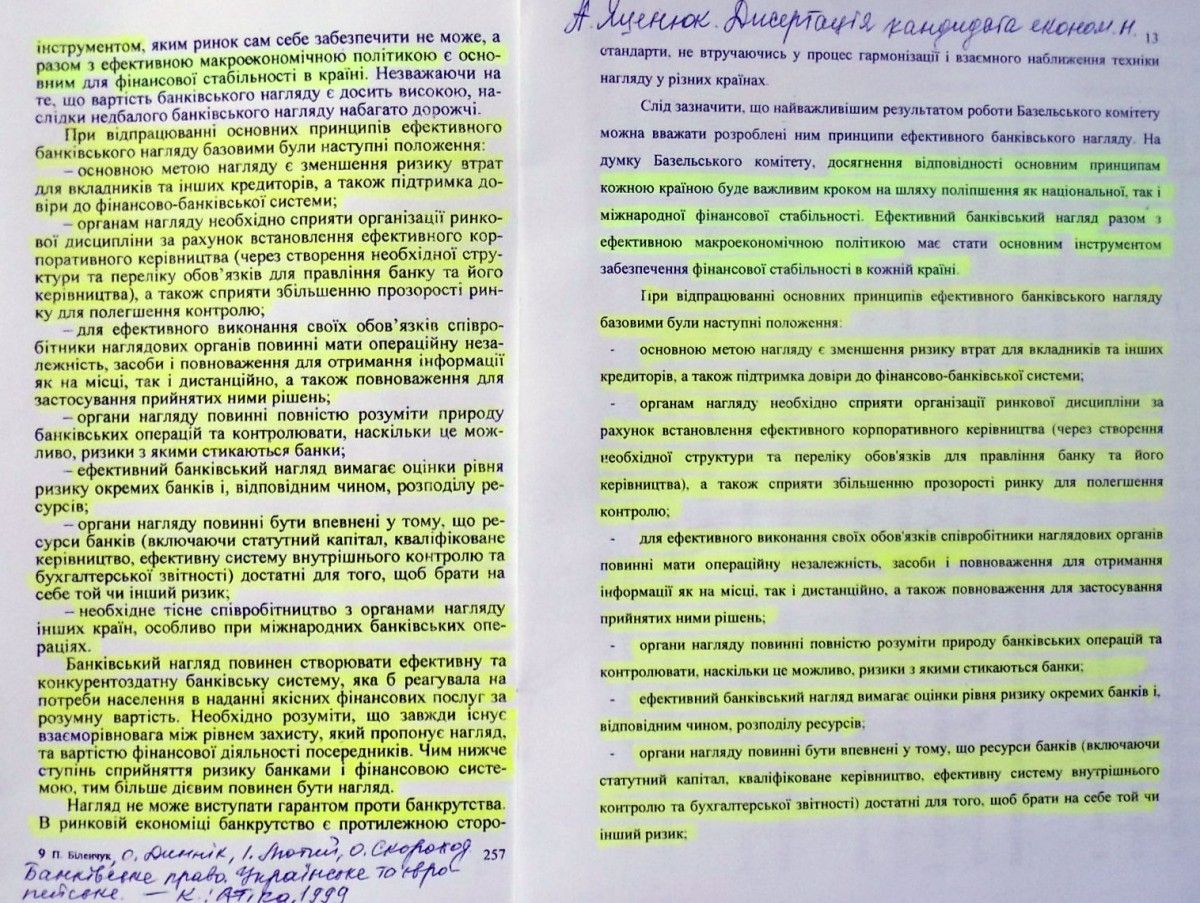 інструментом, яким ринок сам себе забезпечити не може, а
разом з ефективною макроекономічною політикою є осно-
вним для фінансової стабільності в країні. Незважаючи на
те, що вартість банківського нагляду є досить високою, на-
слідки недбалого банківського нагляду набагато дорожчі.
При відпрацюванні основних принципів ефективного
банківського нагляду базовими були наступні положення:
– основною метою нагляду є зменшення ризику втрат
для вкладників та інших кредиторів, а також підтримка до-
віри до фінансово-банківської системи;
– органам нагляду необхідно сприяти організації ринко-
вої дисципліни за рахунок встановлення ефективного кор-
поративного керівництва (через створення необхідної стру-
ктури та переліку обов’язків для правління банку та його
керівництва), а також сприяти збільшенню прозорості рин-
ку для полегшення контролю;
– для ефективного виконання своїх обов’язків співро-
бітники наглядових органів повинні мати операційну неза-
лежність, засоби і повноваження для отримання інформації
як на місці, так і дистанційно, а також повноваження для
застосування прийнятих ними рішень;
– органи нагляду повинні повністю розуміти природу
банківських операцій та контролювати, наскільки це мож-
ливо, ризики з якими стикаються банки;
– ефективний банківський нагляд вимагає оцінки рівня
ризику окремих банків і, відповідним чином, розподілу ре-
сурсів;
– органи нагляду повинні бути впевнені у тому, що ре-
сурси банків (включаючи статутний капітал, кваліфіковане
керівництво, ефективну систему внутрішнього контролю та
бухгалтерської звітності) достатні для того, щоб брати на
себе той чи інший ризик;
– необхідне тісне співробітництво з органами нагляду
інших країн, особливо при міжнародних банківських опе-
раціях.
Банківський нагляд повинен створювати ефективну та
конкурентоздатну банківську систему, яка б реагувала на
потреби населення в наданні якісних фінансових послуг за
розумну вартість. Необхідно розуміти, що завжди існує
взаєморівновага між рівнем захисту, який пропонує нагляд,
та вартістю фінансової діяльності посередників. Чим нижче
ступінь сприйняття ризику банками і фінансовою систе-
мою, тим більше дієвим повинен бути нагляд.
Нагляд не може виступати гарантом проти банкрутства.
В ринковій економіці банкрутство є протилежною сторо-
9 П. Біленчук, О. Диннік, І. Лютий, О. Скороход 257
Банківське право. Українське та євро-
пейське. — К.: Атіка, 1999
А. Яценюк. Дисертація кандидата економ. н. 13
стандарти, не втручаючись у процес гармонізації і взаємного наближення техніки
нагляду у різних країнах.
Слід зазначити, що найважливішим результатом роботи Базельського комітету
можна вважати розроблені ним принципи ефективного банківського нагляду. На
думку Базельського комітету, досягнення відповідності основним принципам
кожною країною буде важливим кроком на шляху поліпшення як національної, так і
міжнародної фінансової стабільності. Ефективний банківський нагляд разом з
ефективною макроекономічною політикою має стати основним інструментом
забезпечення фінансової стабільності в кожній країні.
При відпрацюванні основних принципів ефективного банківського нагляду
базовими були наступні положення:
- основною метою нагляду є зменшення ризику втрат для вкладників та інших
кредиторів, а також підтримка довіри до фінансово-банківської системи;
- органам нагляду необхідно сприяти організації ринкової дисципліни за
рахунок встановлення ефективного корпоративного керівництва (через створення
необхідної структури та переліку обов'язків для правління банку та його
керівництва), а також сприяти збільшенню прозорості ринку для полегшення
контролю;
- для ефективного виконання своїх обов'язків співробітники наглядових органів
повинні мати операційну незалежність, засоби і повноваження для отримання
інформації як на місці, так і дистанційно, а також повноваження для застосування
прийнятих ними рішень;
- органи нагляду повинні повністю розуміти природу банківських операцій та
контролювати, наскільки це можливо, ризики з якими стикаються банки;
- ефективний банківський нагляд вимагає оцінки рівня ризику окремих банків і,
відповідним чином, розподілу ресурсів;
- органи нагляду повинні бути впевнені у тому, що ресурси банків (включаючи
статутний капітал, кваліфіковане керівництво, ефективну систему внутрішнього
контролю та бухгалтерської звітності) достатні для того, щоб брати на себе той чи
інший ризик;